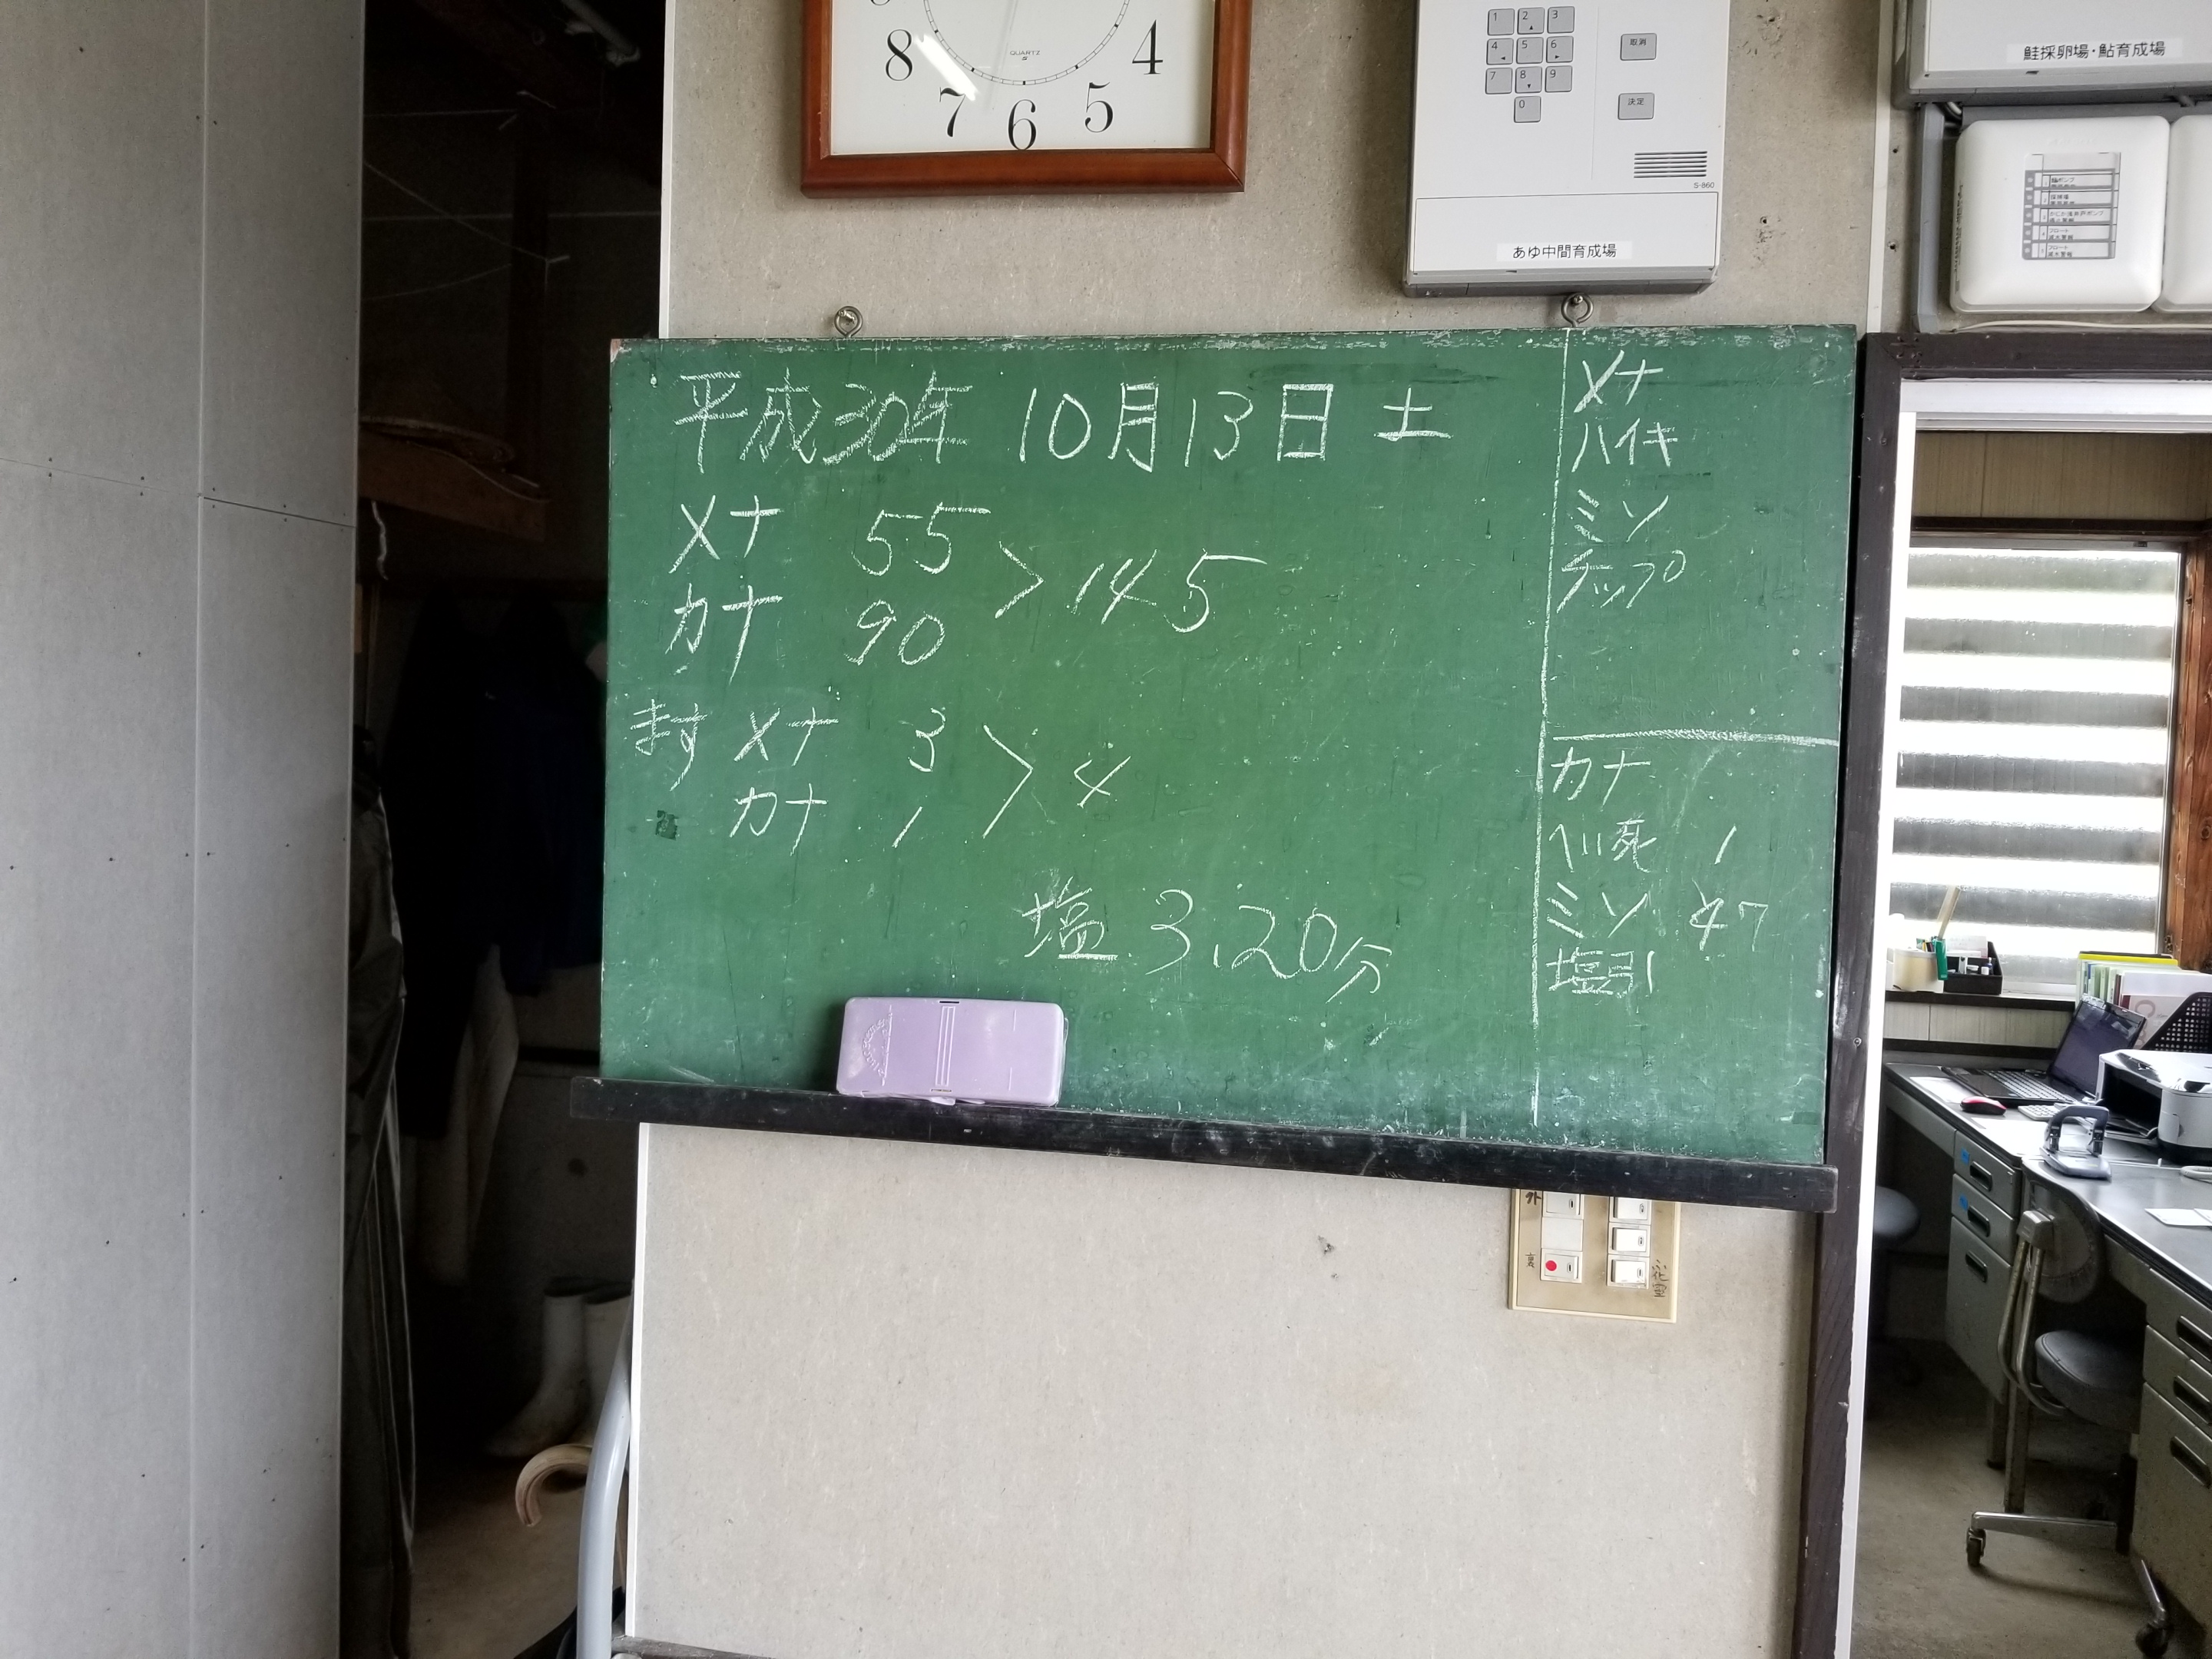 8
7
6
5
4
QUARTZ
1 2 3
4 5 6
7 8 9
0
取消
決定
S-860
あゆ中間育成場
鮭採卵場・鮎育成場
平成30年 10月13日 土
メナ 55
カナ 90
> 145
ます メナ 3
カナ 1
> 4
塩 3.20分
メナ
ハイキ
ミソ
テップ
カナ
ヘい死 1
ミソ 47
塩引
外